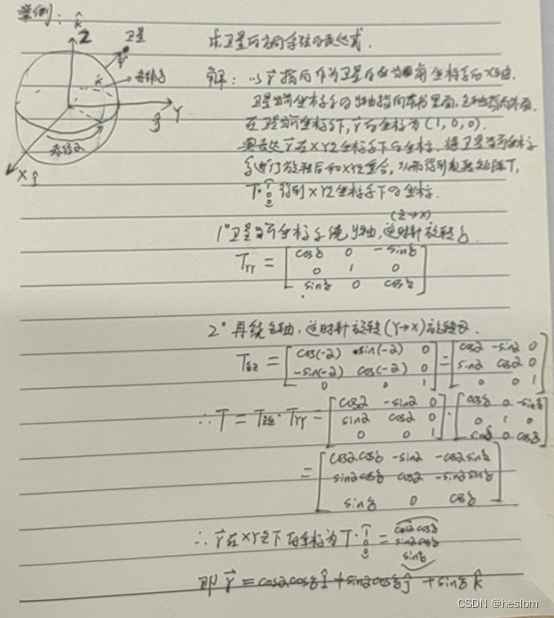 举例:
k̂
Z
卫星
r
赤纬δ
Y
ĵ
赤经α
X î
求卫星方向矢径的表达式.
解: 以r指向作为卫星当前坐标系的X轴.
在卫星当前坐标系下, r的坐标为(1,0,0).
要表达r在XYZ坐标系下的坐标, 将卫星当前坐标
系进行旋转后和XYZ重合, 从而得到旋转矩阵T,
T·[1 0 0] 得到XYZ坐标系下的坐标.
(Z→X)
1° 卫星当前坐标系绕y轴, 逆时针旋转δ
Tyy = [cosδ 0 -sinδ
0 1 0
sinδ 0 cosδ]
2° 再绕z轴, 逆时针旋转(Y→X)旋转α.
Tzz = [cos(-α) sin(-α) 0 = [cosα -sinα 0
-sin(-α) cos(-α) 0 sinα cosα 0
0 0 1] 0 0 1]
∴ T = Tzz·Tyy = [cosα -sinα 0 · [cosδ 0 -sinδ
sinα cosα 0 0 1 0
0 0 1] sinδ 0 cosδ]
= [cosαcosδ -sinα -cosαsinδ
sinαcosδ cosα -sinαsinδ
sinδ 0 cosδ]
∴ r在XYZ下的坐标为T·[1 0 0] = [cosαcosδ
sinαcosδ
sinδ]
即 r = cosαcosδ î + sinαcosδ ĵ + sinδ k̂
CSDN @heslbm